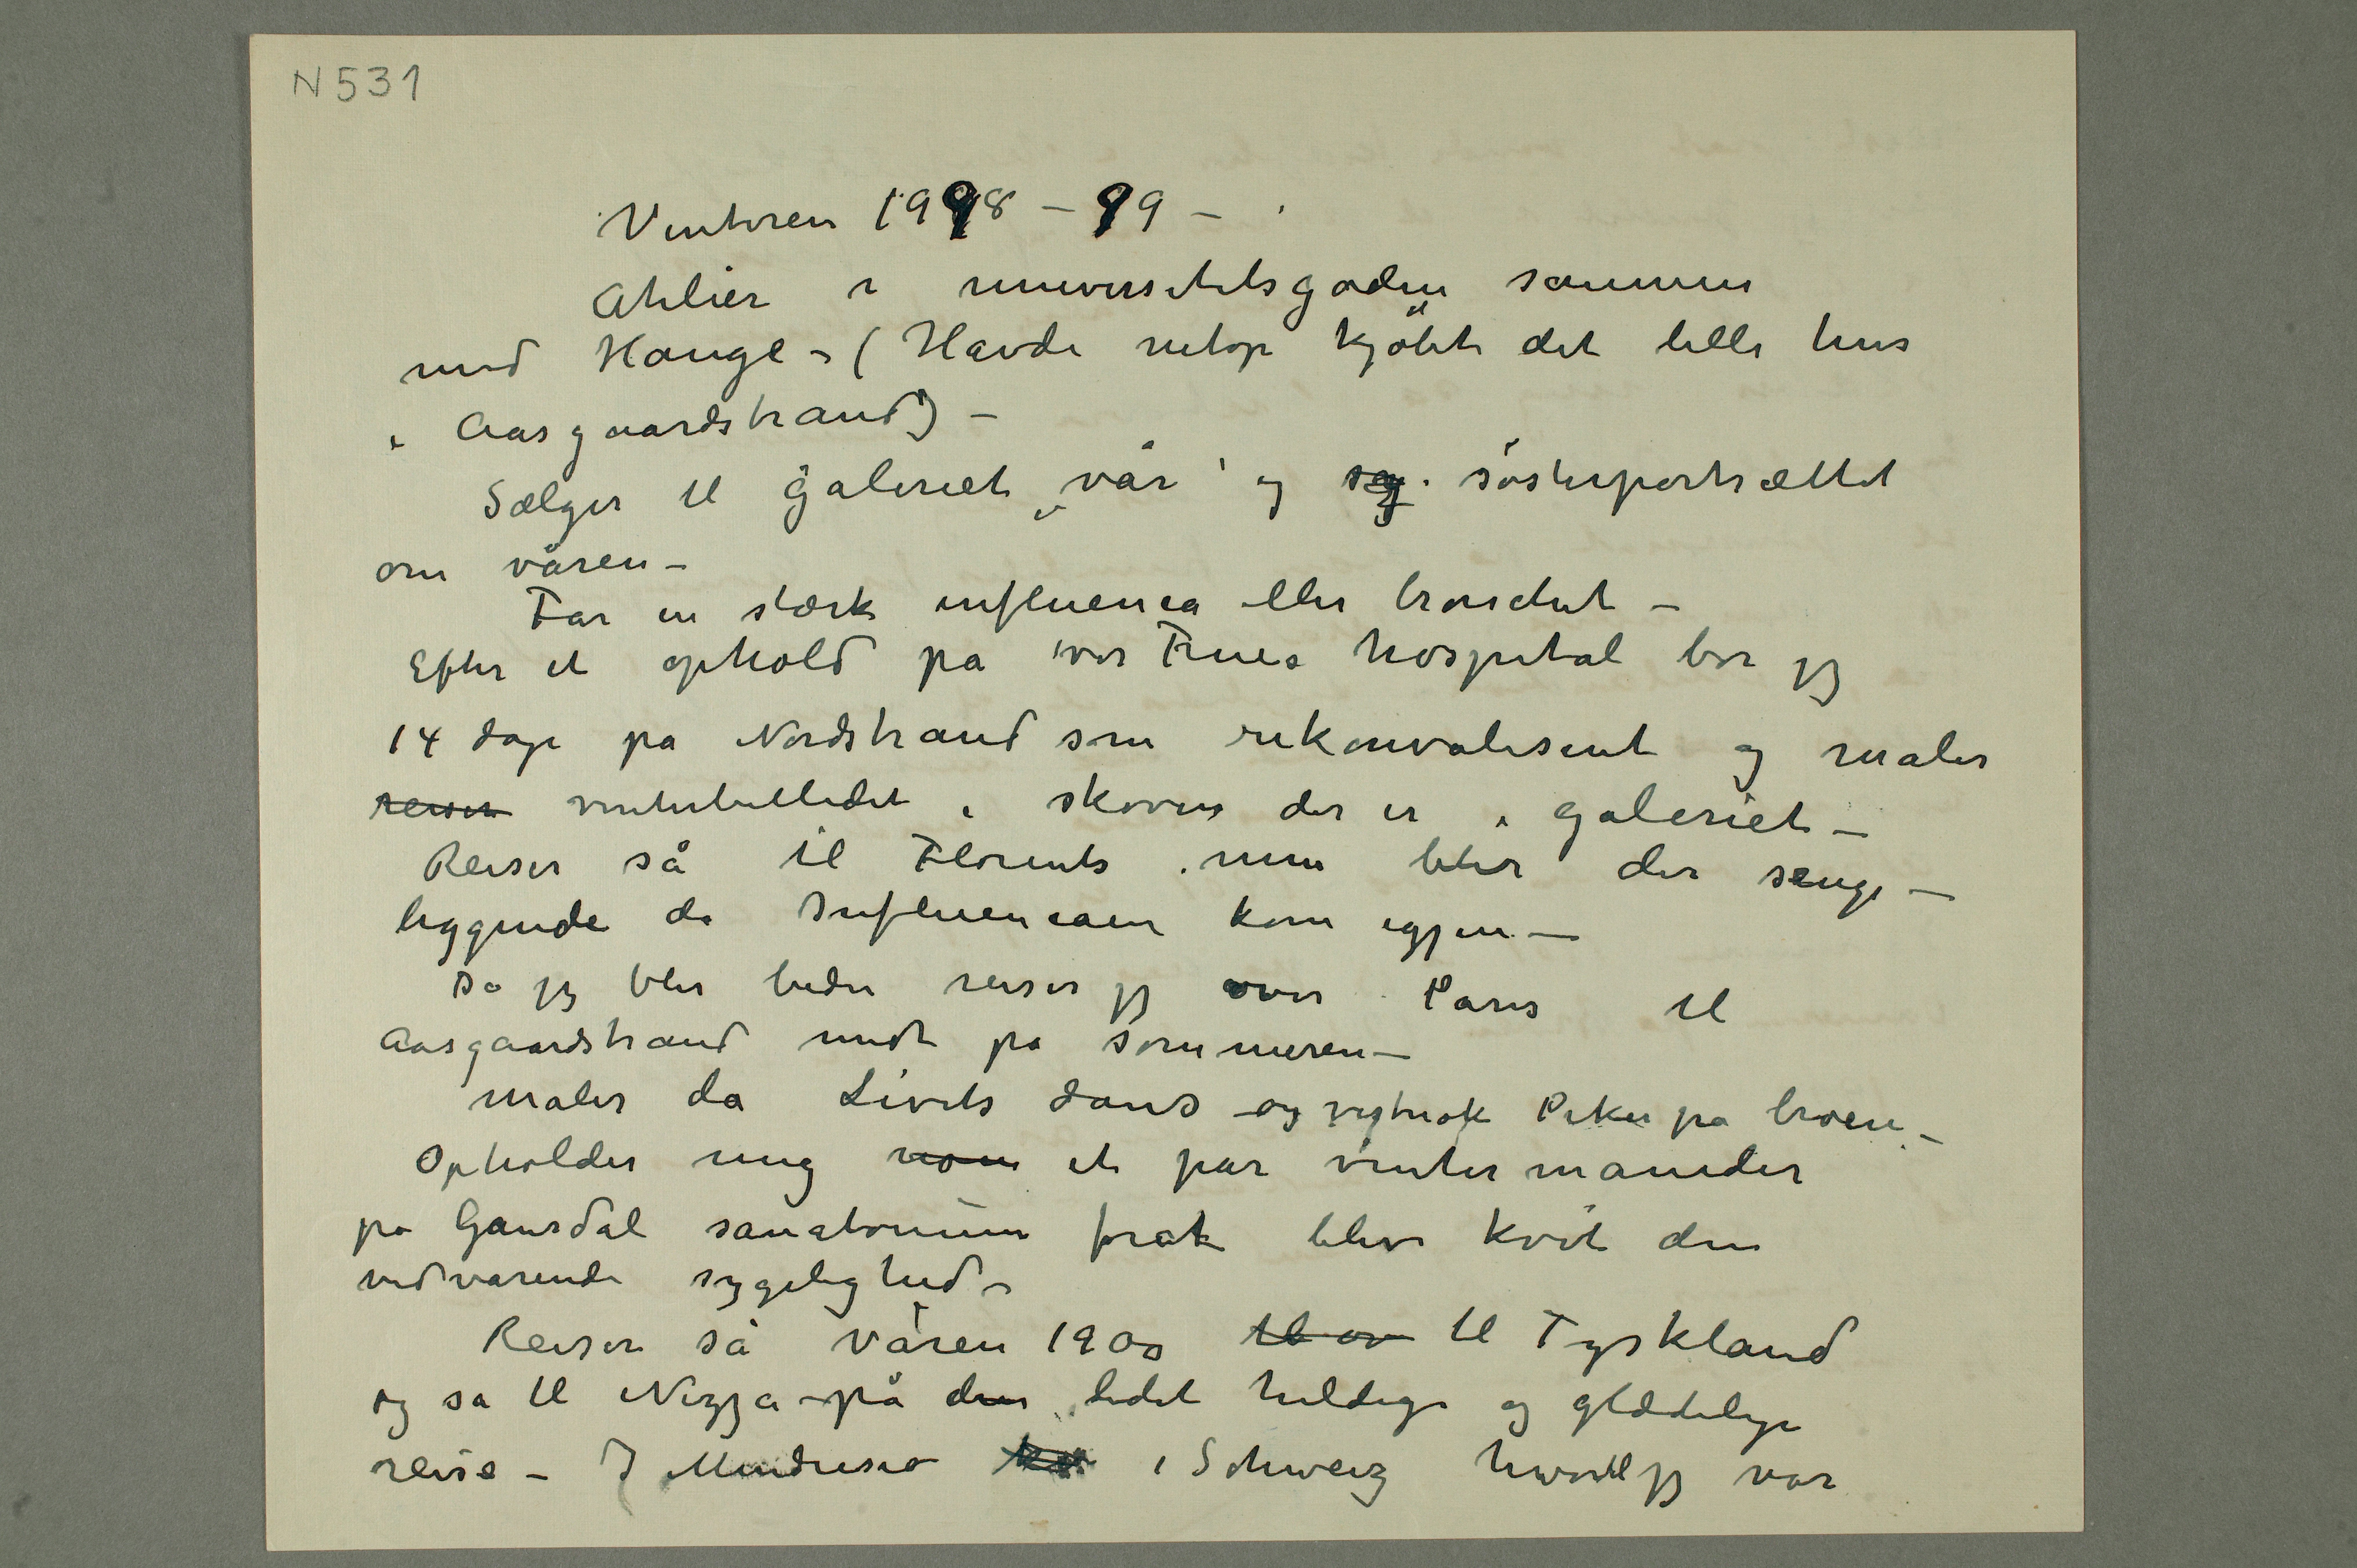 N 531
Vinteren 1998 – 99 –
Atelier i universitetsgaden sammen
med Hauge – ( Havde netop kjøbt det lille hus
i Aasgaardstrand) –
Sælger til galeriet „vår“ og søsterportrættet
om våren –
Får en stærk influenca eller bronchit –
Efter et ophold på vor Frues hospital bor jeg
14 dage på Nordstrand som rekonvalesent og maler
reiser vinterbilledet i skoven der er i galeriet –
Reiser så til Florents men blir der senge –
liggende da Influencaen kom igjen –
Da jeg blir bedre reiser jeg over Paris til
Aasgaardstrand midt på sommeren –
maler da Livets dans og Piker på broen –
Opholder mig et par vintermåneder
på Gausdal sanatorium forat blive kvit den
vedvarende sygelighed –
Reiser så våren 1900 til ov til Tyskland
og så til Nizza – på den lidet heldige og glædelige
reise – I Mendrisio i Schweiz hvortil jeg var